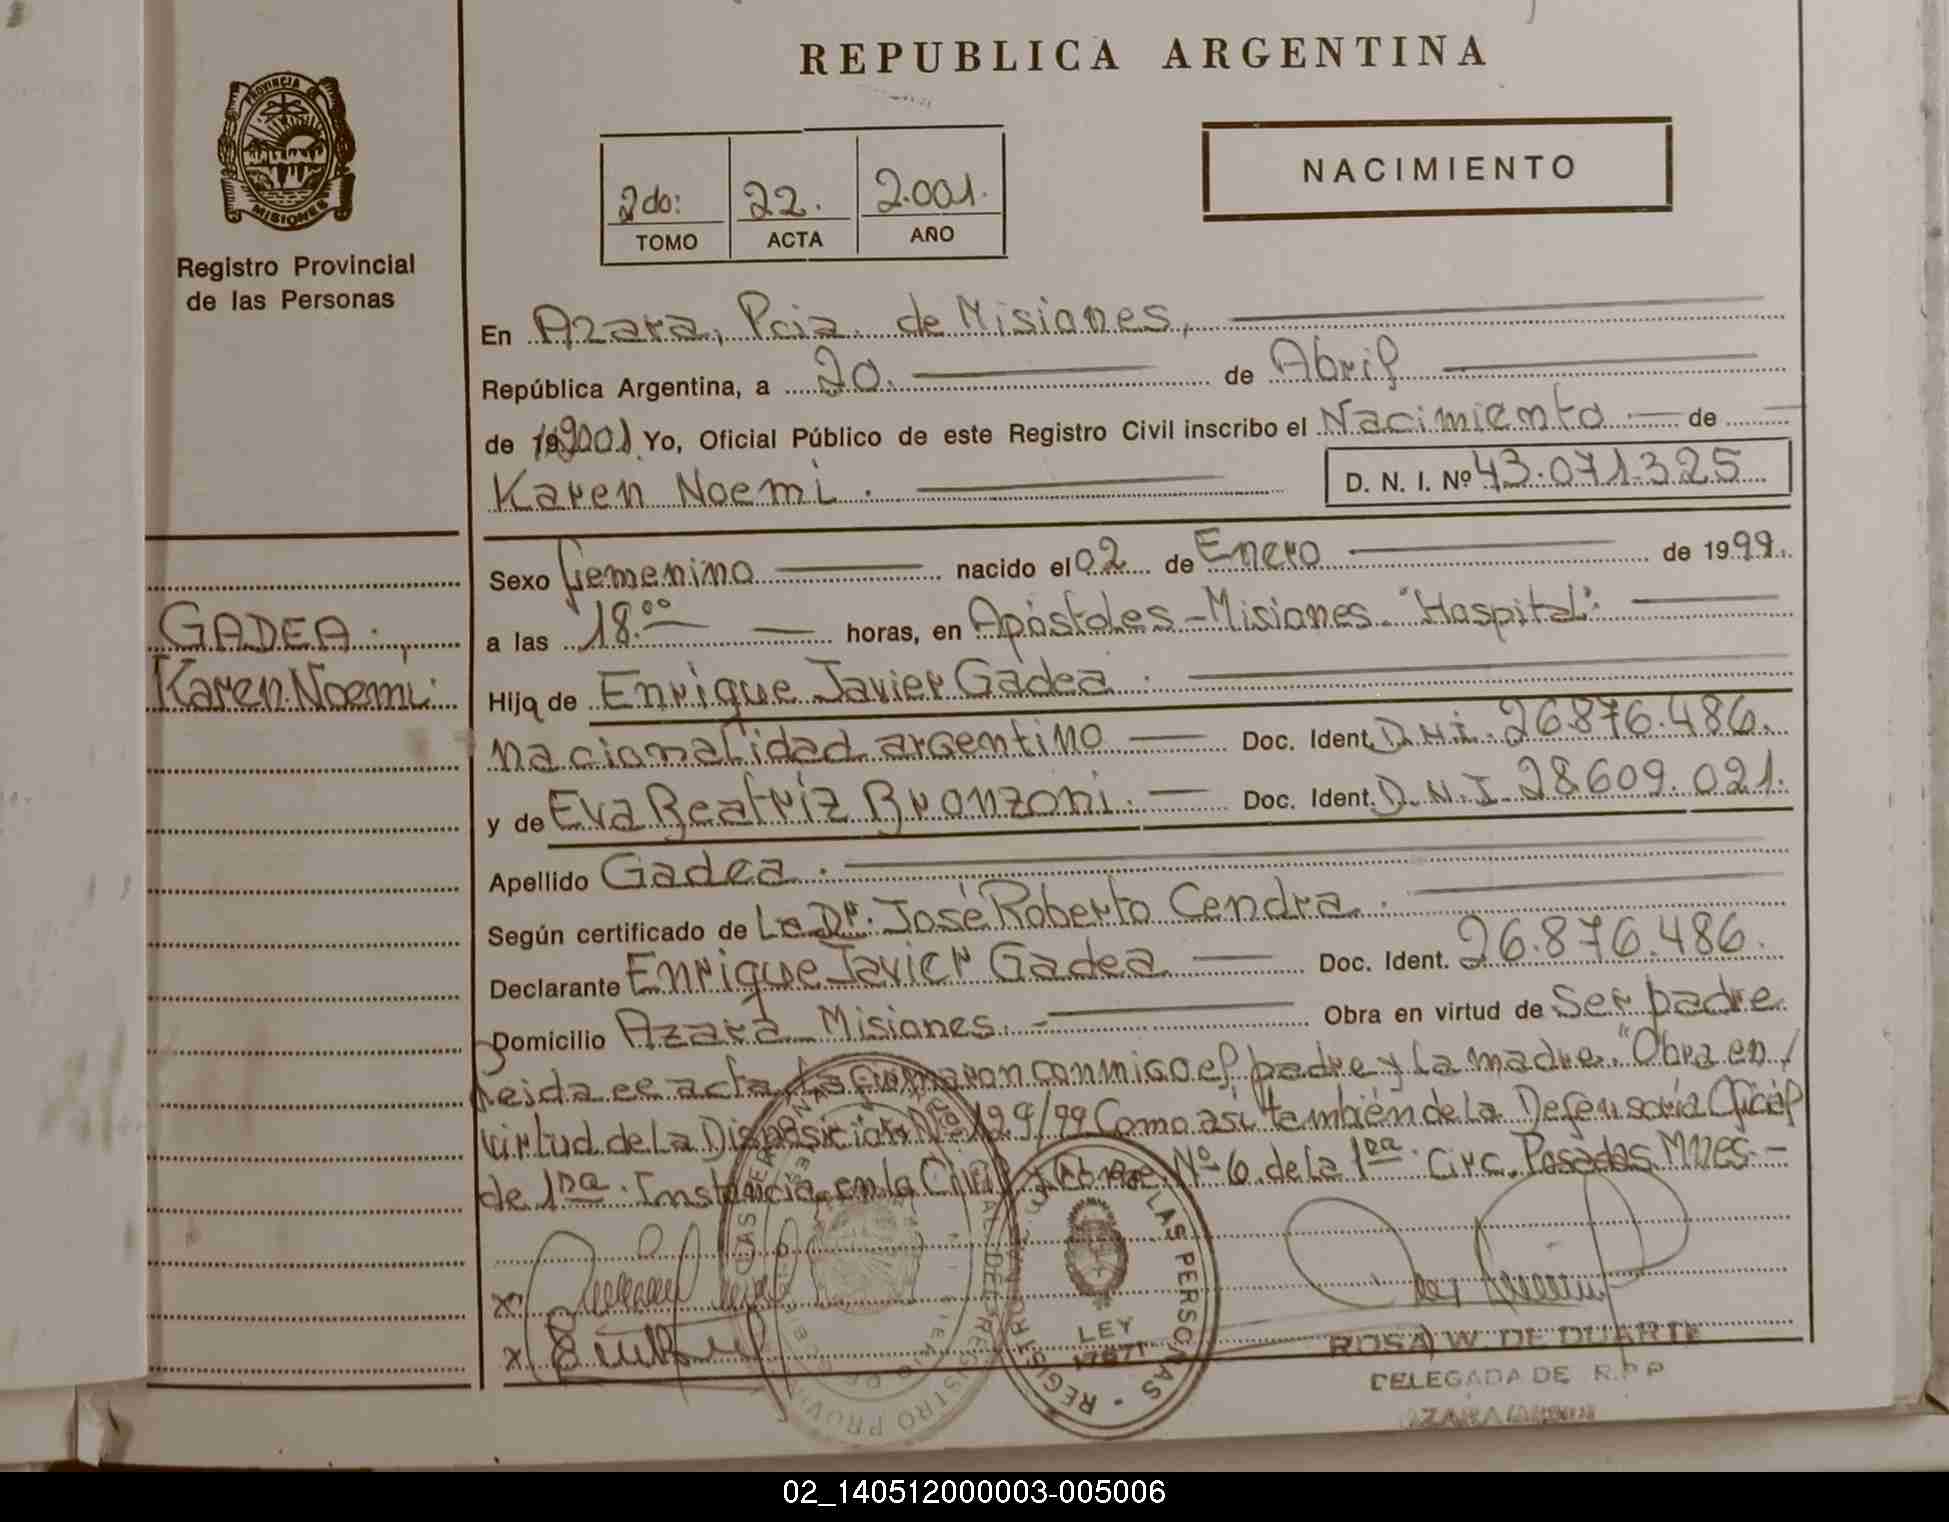 REPUBLICA ARGENTINA
PROVINCIA
MISIONES
Registro Provincial
de las Personas
2do: 22. 2.001.
TOMO ACTA AÑO
NACIMIENTO
En Azara, Pcia. de Misiones,
República Argentina, a 20. de Abril
de 2001 Yo, Oficial Público de este Registro Civil inscribo el Nacimiento de
Karen Noemi. D. N. I. Nº 43.071.325
Sexo femenino nacido el 02 de Enero de 1999.
a las 18.00 horas, en Apóstoles - Misiones. "Hospital".
GADEA.
Karen Noemi.
Hija de Enrique Javier Gadea.
nacionalidad argentino Doc. Ident. D.N.I. 26.876.486.
y de Eva Beatriz Bronzoni. Doc. Ident. D.N.I. 28609.021.
Apellido Gadea.
Según certificado de Le Dr. José Roberto Cendra.
Declarante Enrique Javier Gadea Doc. Ident. 26.876.486.
Domicilio Azara Misiones. Obra en virtud de Ser padre
Leida ee acta la firmaron conmigo el padre y la madre. "Obra en/
virtud de la Disposición Nº 129/99 Como así también de la Defensoría Oficial
de 1ra. Instancia en lo Civil Nº 6 de la 1ra. Circ. Posadas Mnes.-
x
x
LAS PERSONAS
LEY
17671
ROSA W. DE DUARTE
DELEGADA DE R.P.P
AZARA
02_140512000003-005006